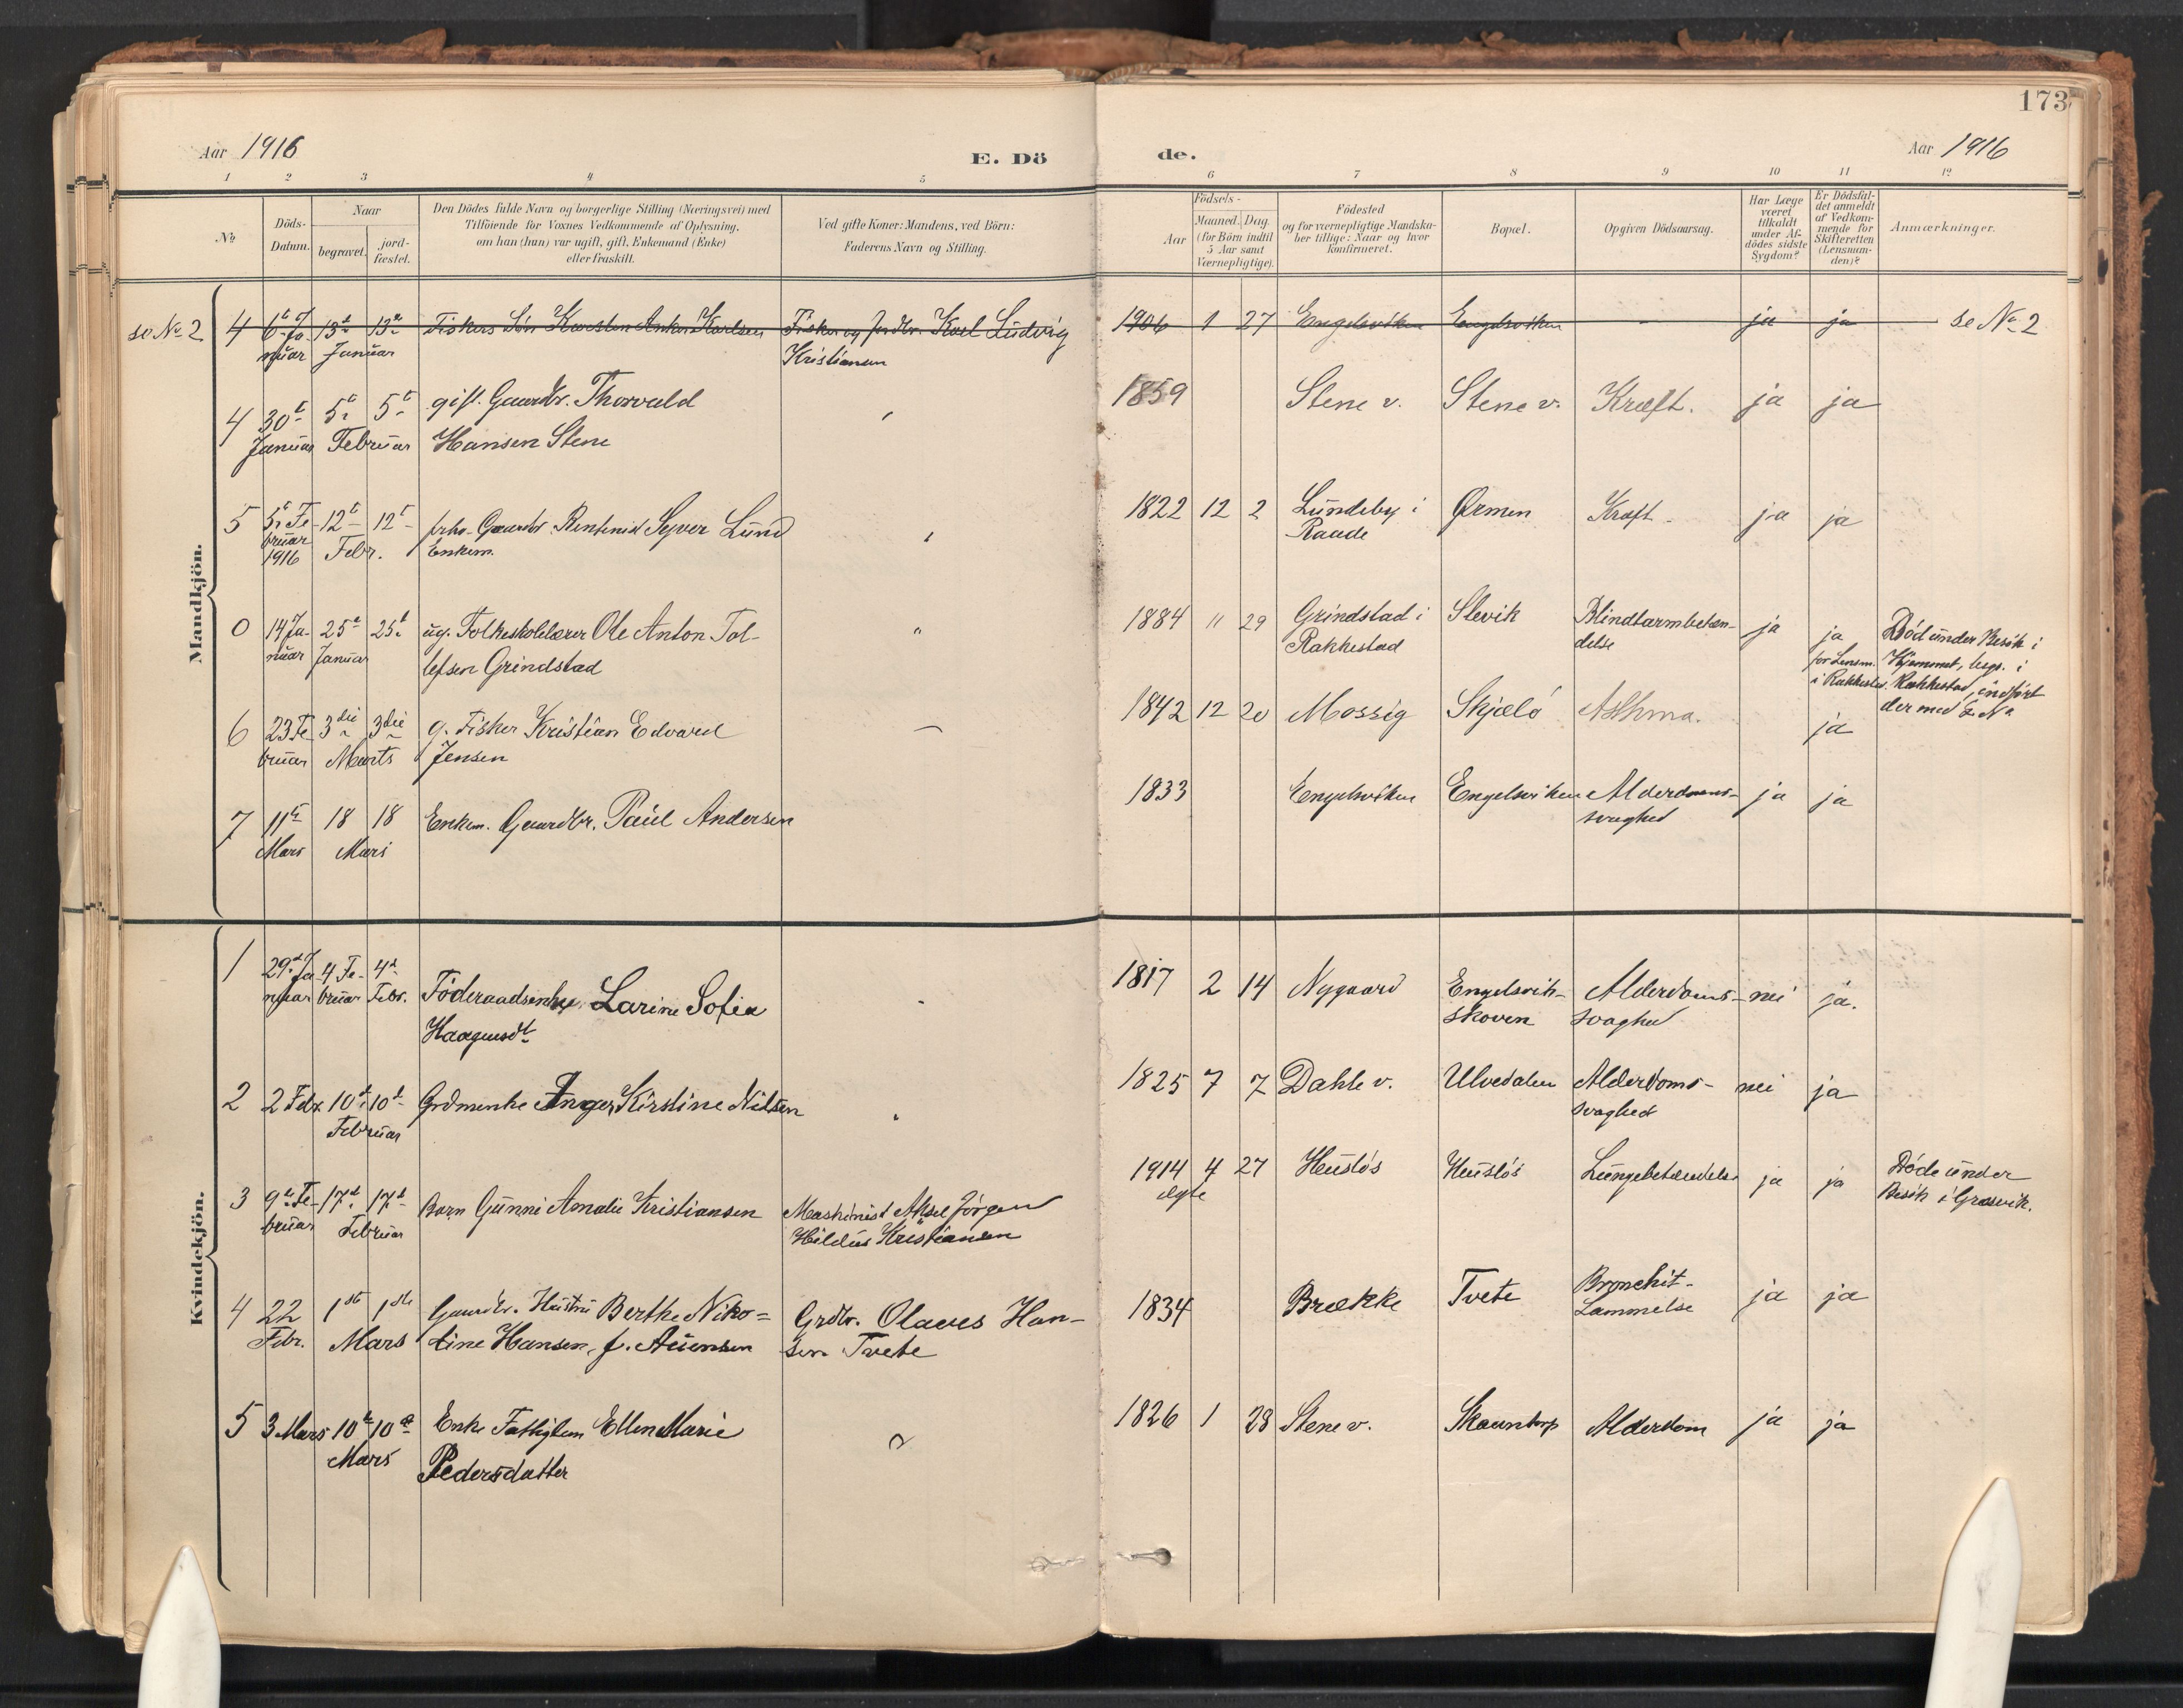 173
Aar 1916
E. Dö
de.
Aar 1916
1 2 3 4 5 6 7 8 9 10 11 12
No
Döds-
Datum.
Naar
begravet.
jord-
fæstet.
Den Dödes fulde Navn og borgerlige Stilling (Næringsvei) med
Tilföiende for Voxnes Vedkommende af Oplysning,
om han (hun) var ugift, gift, Enkemand (Enke)
eller fraskilt.
Ved gifte Koner: Mandens, ved Börn:
Faderens Navn og Stilling.
Födsels-
Aar
Maaned. Dag.
(for Börn indtil
5 Aar samt
Værnepligtige).
Födested
og for værnepligtige Mandska-
ber tillige: Naar og hvor
konfirmeret.
Bopæl.
Opgiven Dödsaarsag.
Har Læge
været
tilkaldt
under Af-
dödes sidste
Sygdom?
Er Dödsfal-
det anmeldt
af Vedkom-
mende for
Skifteretten
(Lensman-
den)?
Anmærkninger.
Mandkjön.
se No 2 4 6t Ja- 13de 13de Fiskers Sön Karsten Anker Karlsen Fisker og Jordbr. Karl Ludvig 1906 1 27 Engelsviken Engelsviken - ja ja se No 2
nuar Januar Kristiansen
4 30t 5t 5t gift. Gaardbr. Thorvald 1859 Stene v. Stene v. Kræft. ja ja
Januar Februar Hansen Stene
5 5t Fe- 12t 12t Gaardbr. Syver Lund 1822 12 2 Lundeby i Ørmen Kræft ja ja
bruar Febr. Enkem. Raade
1916
0 14 Ja- 25t 25t ug. Folkeskolelærer Ole Anton Tol- 1884 11 29 Grindstad i Slevik Blindtarmbetæn- ja ja Död under Besök i
nuar Januar lefsen Grindstad Rakkestad delse for Lensm. Hjemmet, begr. i
i Rakkestad Rakkestad, indfört
der med
6 23 Fe- 3die 3die g. Fisker Kristian Edvard 1842 12 20 Mossig Skjælö Asthma. ja
bruar Marts Jensen
7 11te 18 18 Enkem. Gaardbr. Paul Andersen 1833 Engelsviken Engelsviken Alderdoms- ja ja
Mars Mars svaghed
Kvindekjön.
1 29de Ja- 4 Fe- 4de Föderaadsenke Larine Sofie 1817 2 14 Nygaard Engelsvik- Alderdoms- nei ja.
nuar bruar Febr. Haagensdt skoven svaghed
2 2 Febr. 10de 10de Grdmenke Inger Kirstine Nilsen 1825 7 7 Dahle v. Ulvedalen Alderdoms- nei ja
Februar svaghed
3 9de Fe- 17de 17de Barn Gunni Amalie Kristiansen Maskinist Aksel Jörgen 1914 4 27 Huslös Huslös Lungebetændelse ja ja Döde under
bruar Februar Hildus Kristiansen ægte Besök i Græsvik.
4 22 1ste 1ste Gaardbr. Hustru Berthe Niko= Grdbr. Olaves Han- 1834 Brække Tvete Bronchit- ja ja
Febr. Mars line Hansen, f. sen Tvete Lammelse
5 3 Mars 10de 10de Enke Fattiglem Ellen Marie 1826 1 28 Stene v. Skaantorp Alderdom ja ja
Mars Pedersdatter